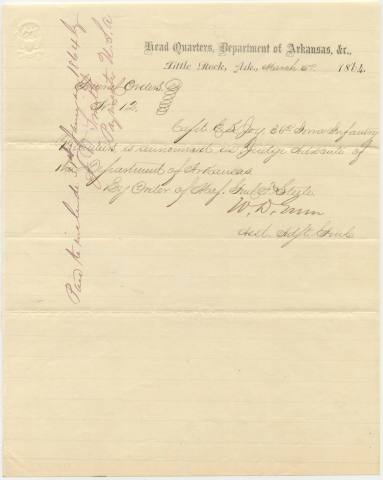 Head Quarters, Department of Arkansas, &c.,
Little Rock, Ark., March 1864.
General Orders,
No 12.
Capt. Ed. Joy, 36th Iowa Infantry
is announced as Judge Advocate of
the Department of Arkansas
By Order of Maj. Genl. F. Steele
W. D. Green
Asst Adjt Genl
Paid to include 1864 by
Paymaster U.S.A